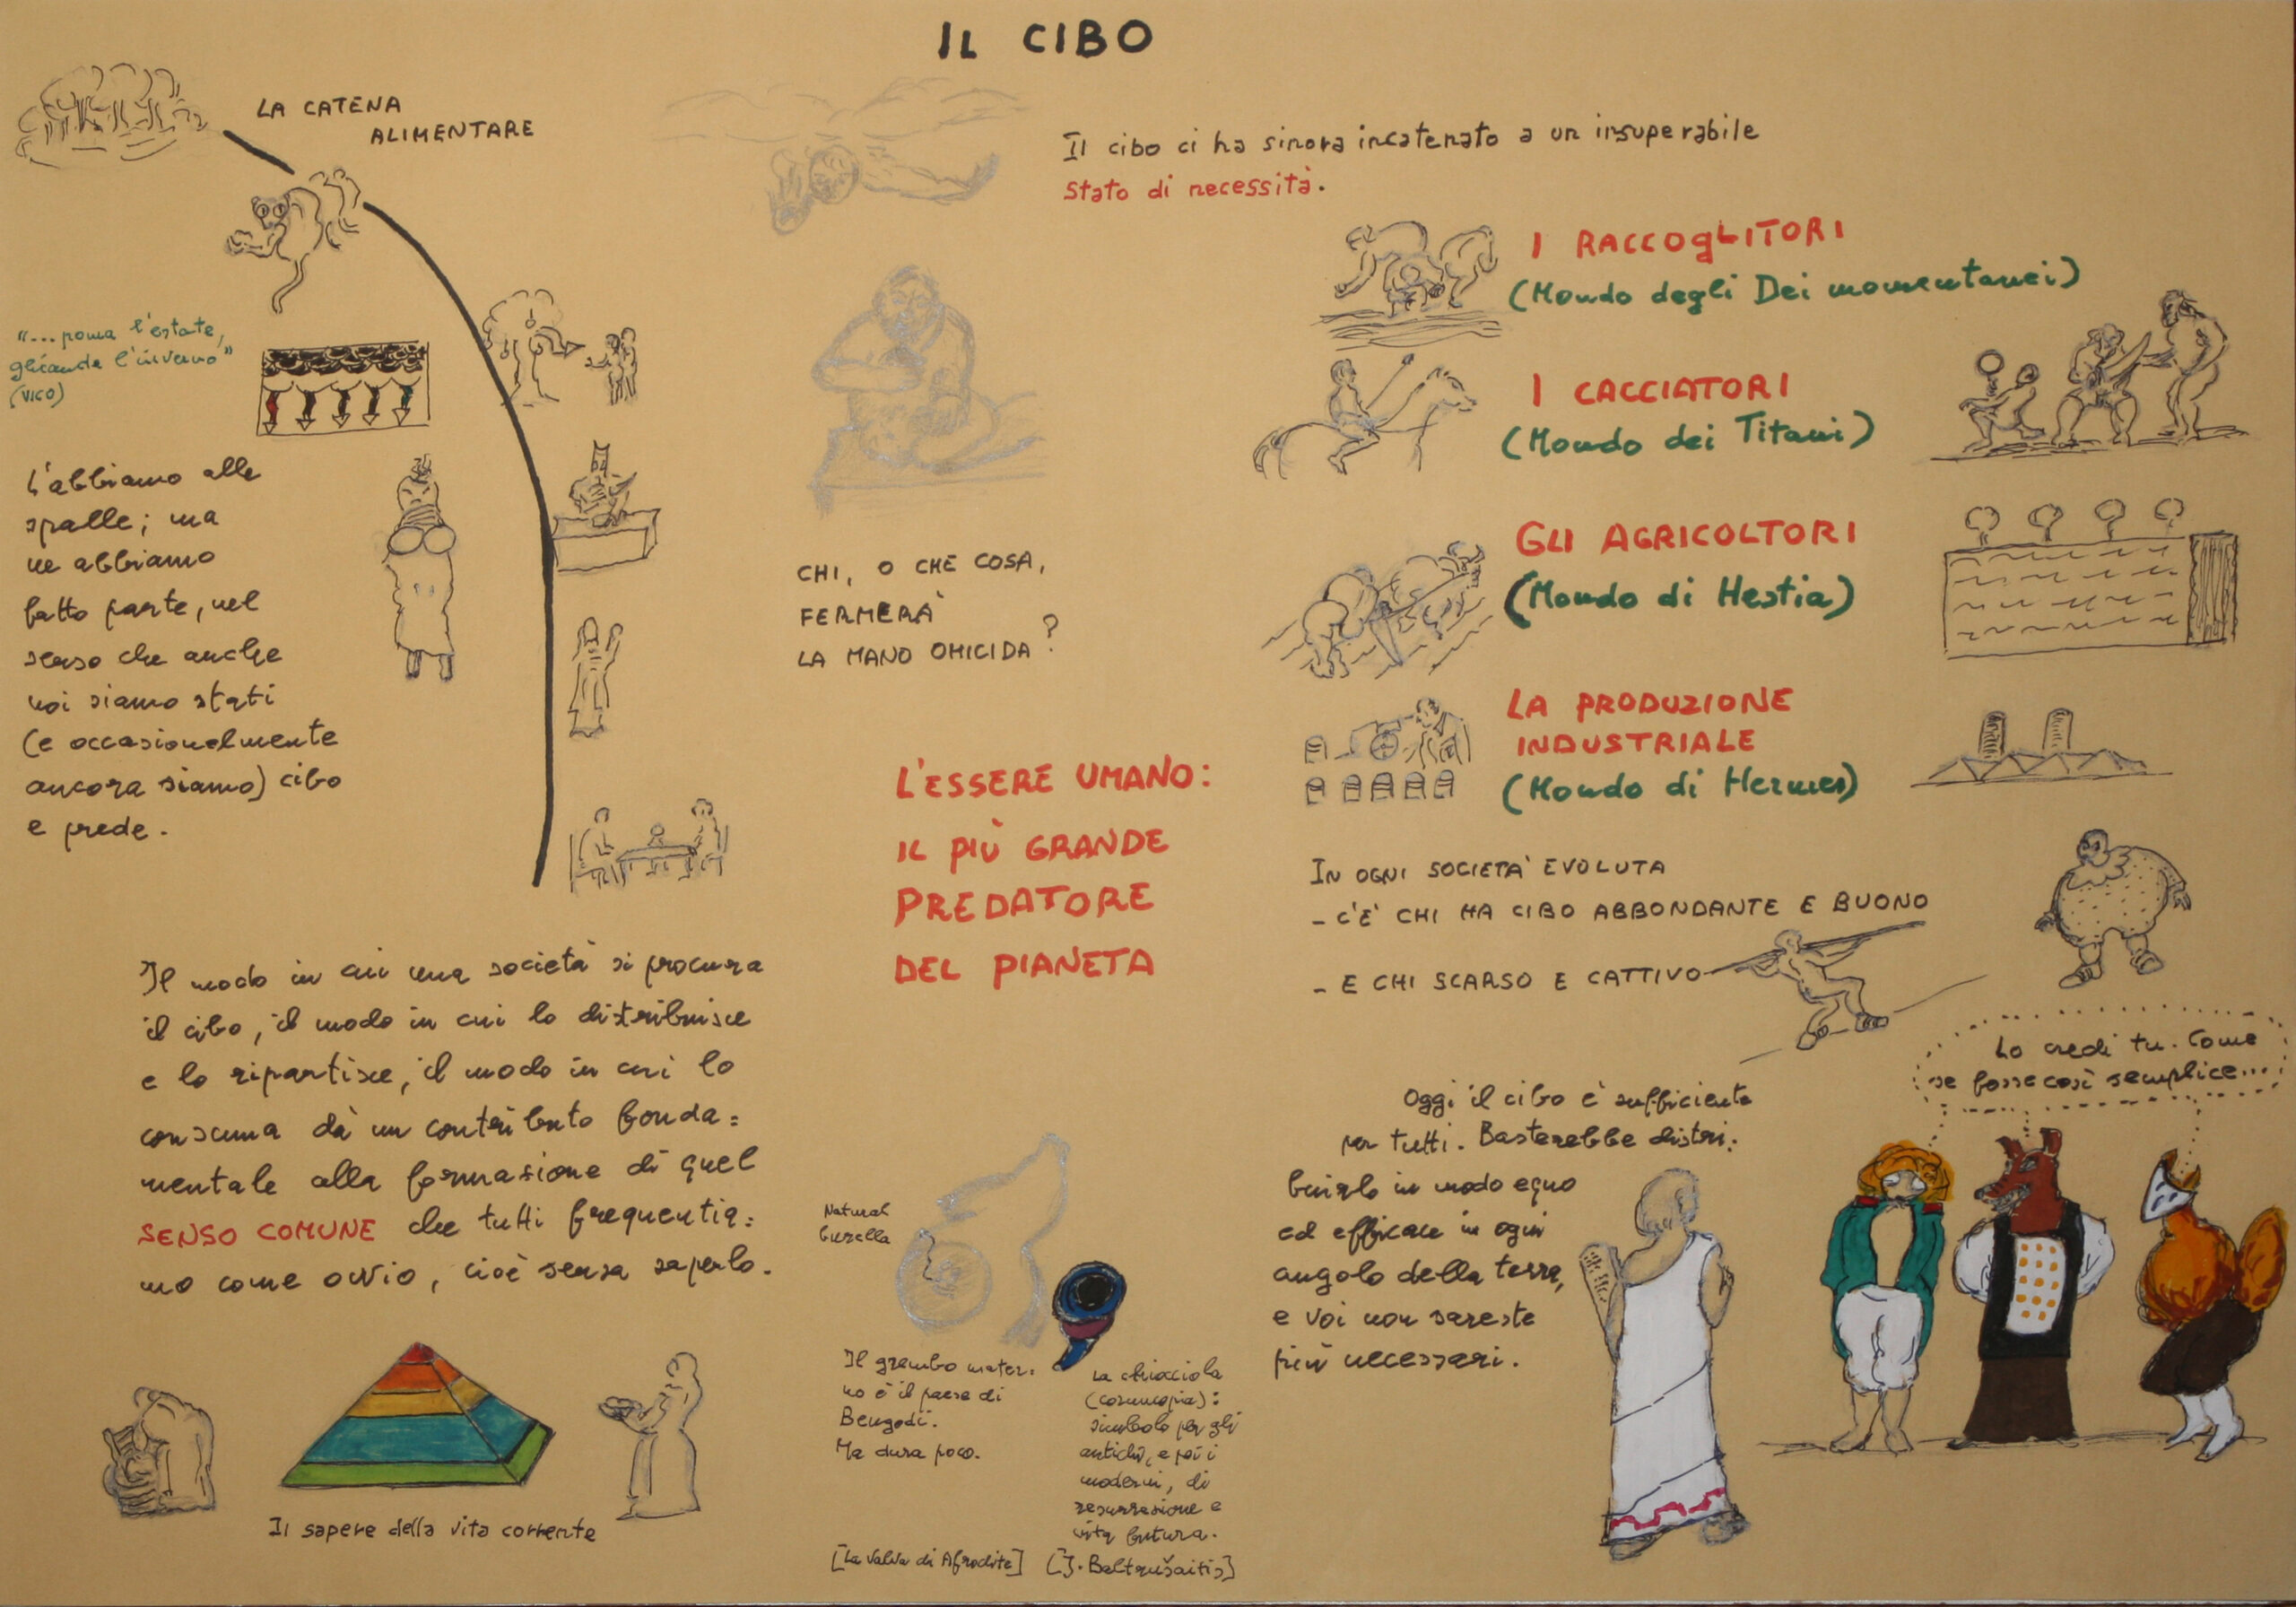 IL CIBO
LA CATENA
ALIMENTARE
"... poma l'estate,
gliande l'inverno"
(VICO)
L'abbiamo alle
spalle; ma
ne abbiamo
fatto parte, nel
senso che anche
noi siamo stati
(e occasionalmente
ancora siamo) cibo
e prede.
Il modo in cui una società si procura
il cibo, il modo in cui lo distribuisce
e lo ripartisce, il modo in cui lo
consuma dà un contributo fonda=
mentale alla formazione di quel
SENSO COMUNE che tutti frequentia=
mo come ovvio, cioè senza saperlo.
Il sapere della vita corrente
CHI, O CHE COSA,
FERMERÀ
LA MANO OMICIDA?
L'ESSERE UMANO:
IL PIÙ GRANDE
PREDATORE
DEL PIANETA
Natural
burella
Il grembo mater:
no è il paese di
Bengodi.
Ma dura poco.
[La Valva di Afrodite]
La chiocciola
(cornucopia):
simbolo per gli
antichi, e poi i
moderni, di
resurrezione e
vita futura.
[J. Baltrušaitis]
Il cibo ci ha sinora incatenato a un insuperabile
Stato di necessità.
I RACCOGLITORI
(Mondo degli Dei momentanei)
I CACCIATORI
(Mondo dei Titani)
GLI AGRICOLTORI
(Mondo di Hestia)
LA PRODUZIONE
INDUSTRIALE
(Mondo di Hermes)
IN OGNI SOCIETÀ EVOLUTA
- C'È CHI HA CIBO ABBONDANTE E BUONO
- E CHI SCARSO E CATTIVO
Oggi il cibo è sufficiente
per tutti. Basterebbe distri:
buirlo in modo equo
ed efficace in ogni
angolo della terra,
e voi non sareste
più necessari.
Lo credi tu. Come
se fosse così semplice...